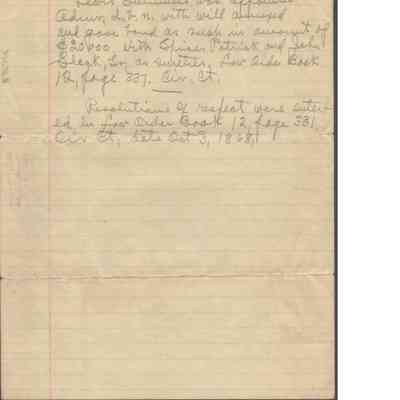 was appointed
Admr, d. b. n. with will annexed
and gave bond as such in amount of
$20000, with Spicer Patrick and John
Slack, Sr, as sureties, Law Order Book
12, page 337. Cir. Ct.
Resolutions of respect were enter-
ed in Law Order Book 12, page 331
Cir Ct, date Oct 3, 1868,